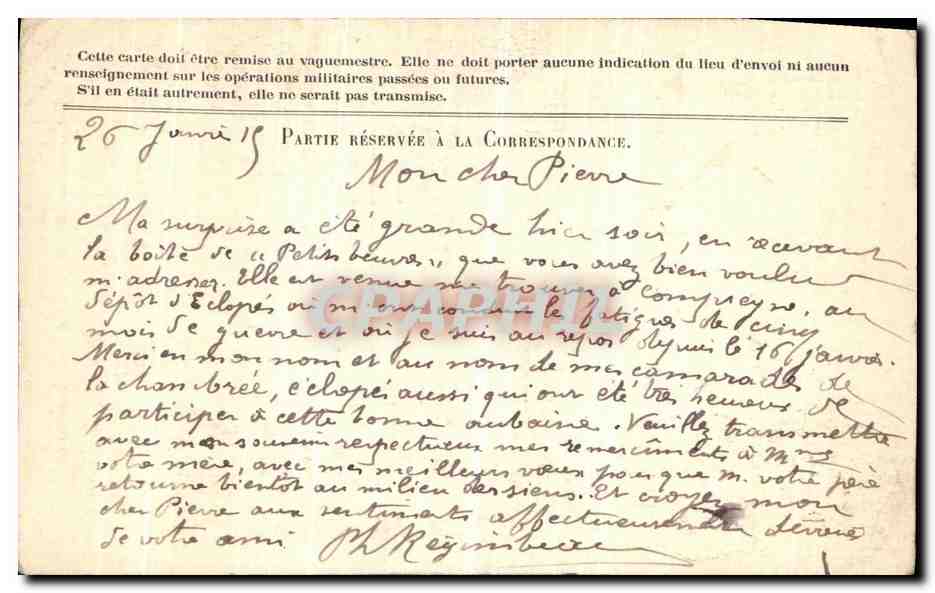 Cette carte doit être remise au vaguemestre. Elle ne doit porter aucune indication du lieu d'envoi ni aucun
renseignement sur les opérations militaires passées ou futures.
S'il en était autrement, elle ne serait pas transmise.
26 Janvier 15 PARTIE RÉSERVÉE À LA CORRESPONDANCE.
Mon cher Pierre
Ma surprise a été grande hier soir, en recevant
la boîte de "Petits beurres", que vous avez bien voulu
m'adresser. Elle est venue me trouver à au
dépôt d'Eclopés où m'ont conduit les fatigues de cinq
mois de guerre et où je suis au repos depuis le 16 janvier.
Merci en mon nom et au nom de mes camarades de
la chambrée, éclopés aussi qui ont été très heureux de
participer à cette bonne aubaine. Veuillez transmettre
avec mon souvenir respectueux mes remerciements à Mme
votre mère, avec mes meilleurs vœux pour que M. votre père
retourne bientôt au milieu des siens. Et croyez mon
cher Pierre aux sentiments affectueusement dévoués
de votre ami
CPAPHIL